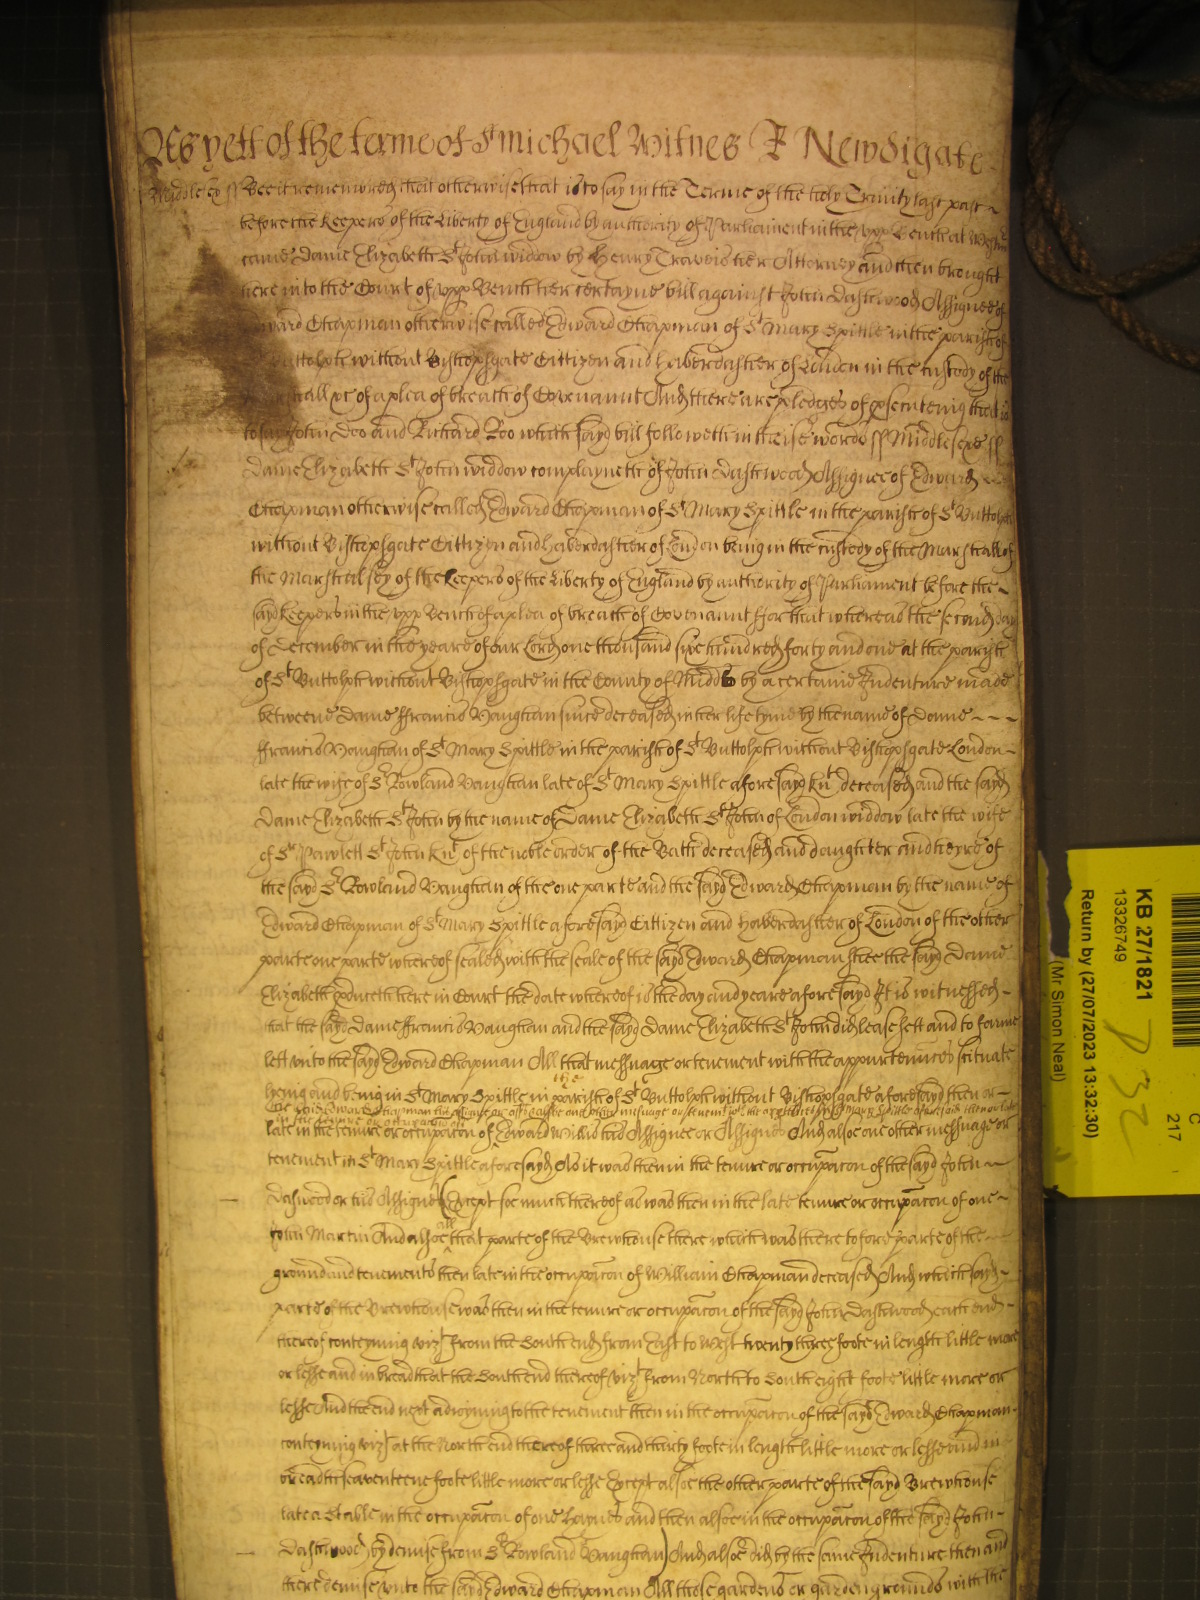 As yett of the terme of St Michael Witnes R Newdigate
Middlesex ss Bee it remembred that otherwise that is to say in the Terme of the holy Trinity last past
before the Keepers of the Liberty of England by authority of Parliament in the upp Bench at Westm
came Dame Elizabeth St John widdow by Henry Travers her Attorney and then brought
here into the Court of upp Bench her certayne bill against John Dashwood Assignee of
Edward Chapman otherwise called Edward Chapman of St Mary Spittle in the parish of
Buttolph without Bishopsgate Cittizen and haberdasher of London in the custody of the
Marshall &c of a plea of breach of Covenannt And there are pledges of prosecuteing that is
to say John Doo and Richard Roo which sayd bill followeth in theise words ss Middlesex ss
Dame Elizabeth St John widdow complayneth of John Dashwood Assignee of Edward
Chapman otherwise called Edward Chapman of St Mary Spittle in the parish of St Buttolph
without Bishopsgate Cittizen and haberdasher of London being in the custody of the Marshall of
the Marshalsey of the Keepers of the Liberty of England by authority of Parliament before the
sayd Keepers in the upp Bench of a plea of breach of Covenannt ffor that whereas the second day
of December in the yeare of our Lord one thousand sixe hundred forty and one at the parish
of St Buttolph without Bishopsgate in the County of Midd by a certaine Indenture made
betweene Dame ffrancis Vaughan since deceased in her life tyme by the name of Dame
ffrancis Vaughan of St Mary Spittle in the parish of St Buttolph without Bishopsgate London
late the wife of Sr Rowland Vaughan late of St Mary Spittle aforesayd Knt deceased and the sayd
Dame Elizabeth St John by the name of Dame Elizabeth St John of London widdow late the wife
of Sr Pawlett St John Knt of the noble order of the Bath deceased and daughter and heyre of
the sayd Sr Rowland Vaughan of the one parte and the sayd Edward Chapman by the name of
Edward Chapman of St Mary Spittle aforesayd Cittizen and haberdasher of London of the other
parte one parte whereof sealed with the seale of the sayd Edward Chapman shee the sayd Dame
Elizabeth produceth here in Court the date whereof is the day and yeare aforesayd It is witnessed
that the sayd Dame ffrancis Vaughan and the sayd Dame Elizabeth St John did lease sett and to farme
lett unto the sayd Edward Chapman All that messuage or tenement with the appurtennces scituate
the
lyeing and being in St Mary Spittle in parish of St Buttolph without Bishopsgate aforesayd then or
late in the tenure or occupacon of Edward his Assignee or Assignes And alsoe one other messuage or
tenement in St Mary Spittle aforesayd As it was then in the tenure or occupacon of the sayd John
Dashwood or his Assignes (Except soe much thereof as was then in the late tenure or occupacon of one
all
John Martin And alsoe that parte of the Brewhouse there which was theretofore parte of the
ground and tenements then late in the occupacon of William Chapman deceased And which sayd
parte of the Brewhouse was then in the tenure or occupacon of the sayd John Dashwood each end
thereof conteyning vizt from the South end from East to West twenty three foote in length little more
or lesse and in breadth at the South end thereof vizt from North to South eight foote little more or
lesse And the end next adioyning to the tenement then in the occupacon of the sayd Edward Chapman
conteyning vizt at the North end thereof three and thirty foote in length little more or lesse and in
breadth seaventeene foote little more or lesse Except alsoe the other parte of the sayd Brewhouse
late a Stable in the occupacon of one Haynes and then alsoe in the occupacon of the sayd John
Dashwood by demise from Sr Rowland Vaughan) And alsoe did by the same Indenture then and
there demise unto the sayd Edward Chapman All those gardens or garden grounds with the
KB 27/1821
13326749
Return by (27/07/2023 13:32:30)
(Mr Simon Neal)
217